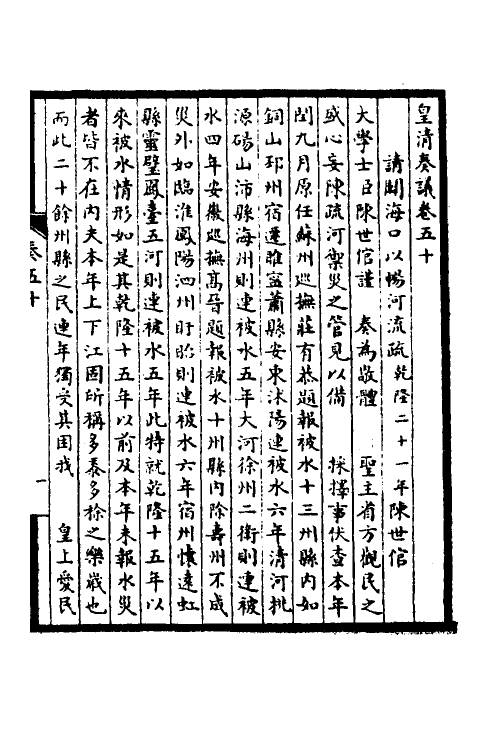 皇清奏議卷五十
請開海口以暢河流疏乾隆二十一年陳世倌
大學士臣陳世倌謹 奏為敬體 聖主省方觀民之
盛心妄陳疏河禦災之管見以備 採擇事伏查本年
閏九月原任蘇州巡撫莊有恭題報被水十三州縣内如
銅山邳州宿遷睢寧蕭縣安東沐陽連被水六年清河桃
源碭山沛縣海州則連被水五年大河徐州二衛則連被
水四年安徽巡撫高晉題報被水十州縣内除壽州不成
災外如臨淮鳳陽泗州盱眙則連被水六年宿州懷遠虹
縣靈璧鳳臺五河則連被水五年此特就乾隆十五年以
來被水情形如是其乾隆十五年以前及本年未報水災
者皆不在内夫本年上下江固所稱多黍多稌之樂歲也
而此二十餘州縣之民連年獨受其困我 皇上愛民
卷五十
一